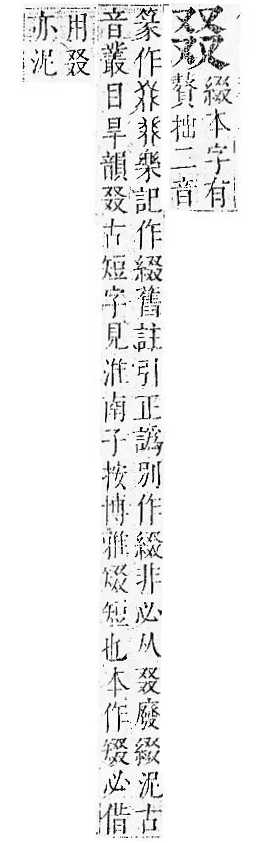 叕
綴本字有
贅拙二音
篆作樂記作綴舊註引正譌別作綴非必从叕廢綴泥古
音叢目旱韻叕古短字見淮南子按博雅䂐短也本作䂐必借
用叕
亦泥